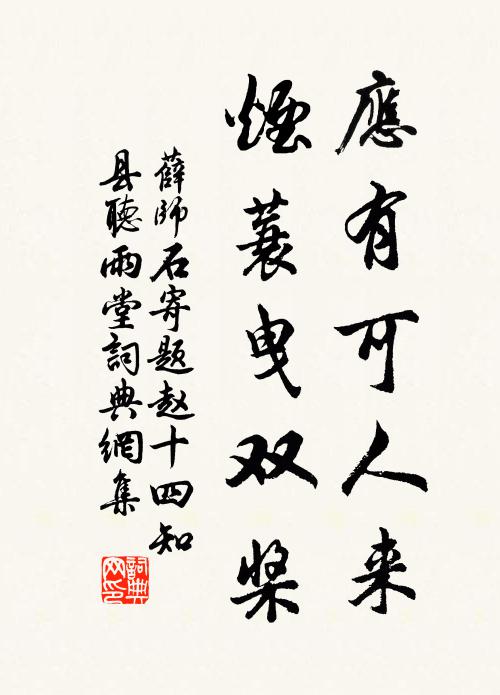 應有可人来
煙蓑曳双桨
薛師石寄題赵十四知
县聽雨堂詞典網集
詞典
网印